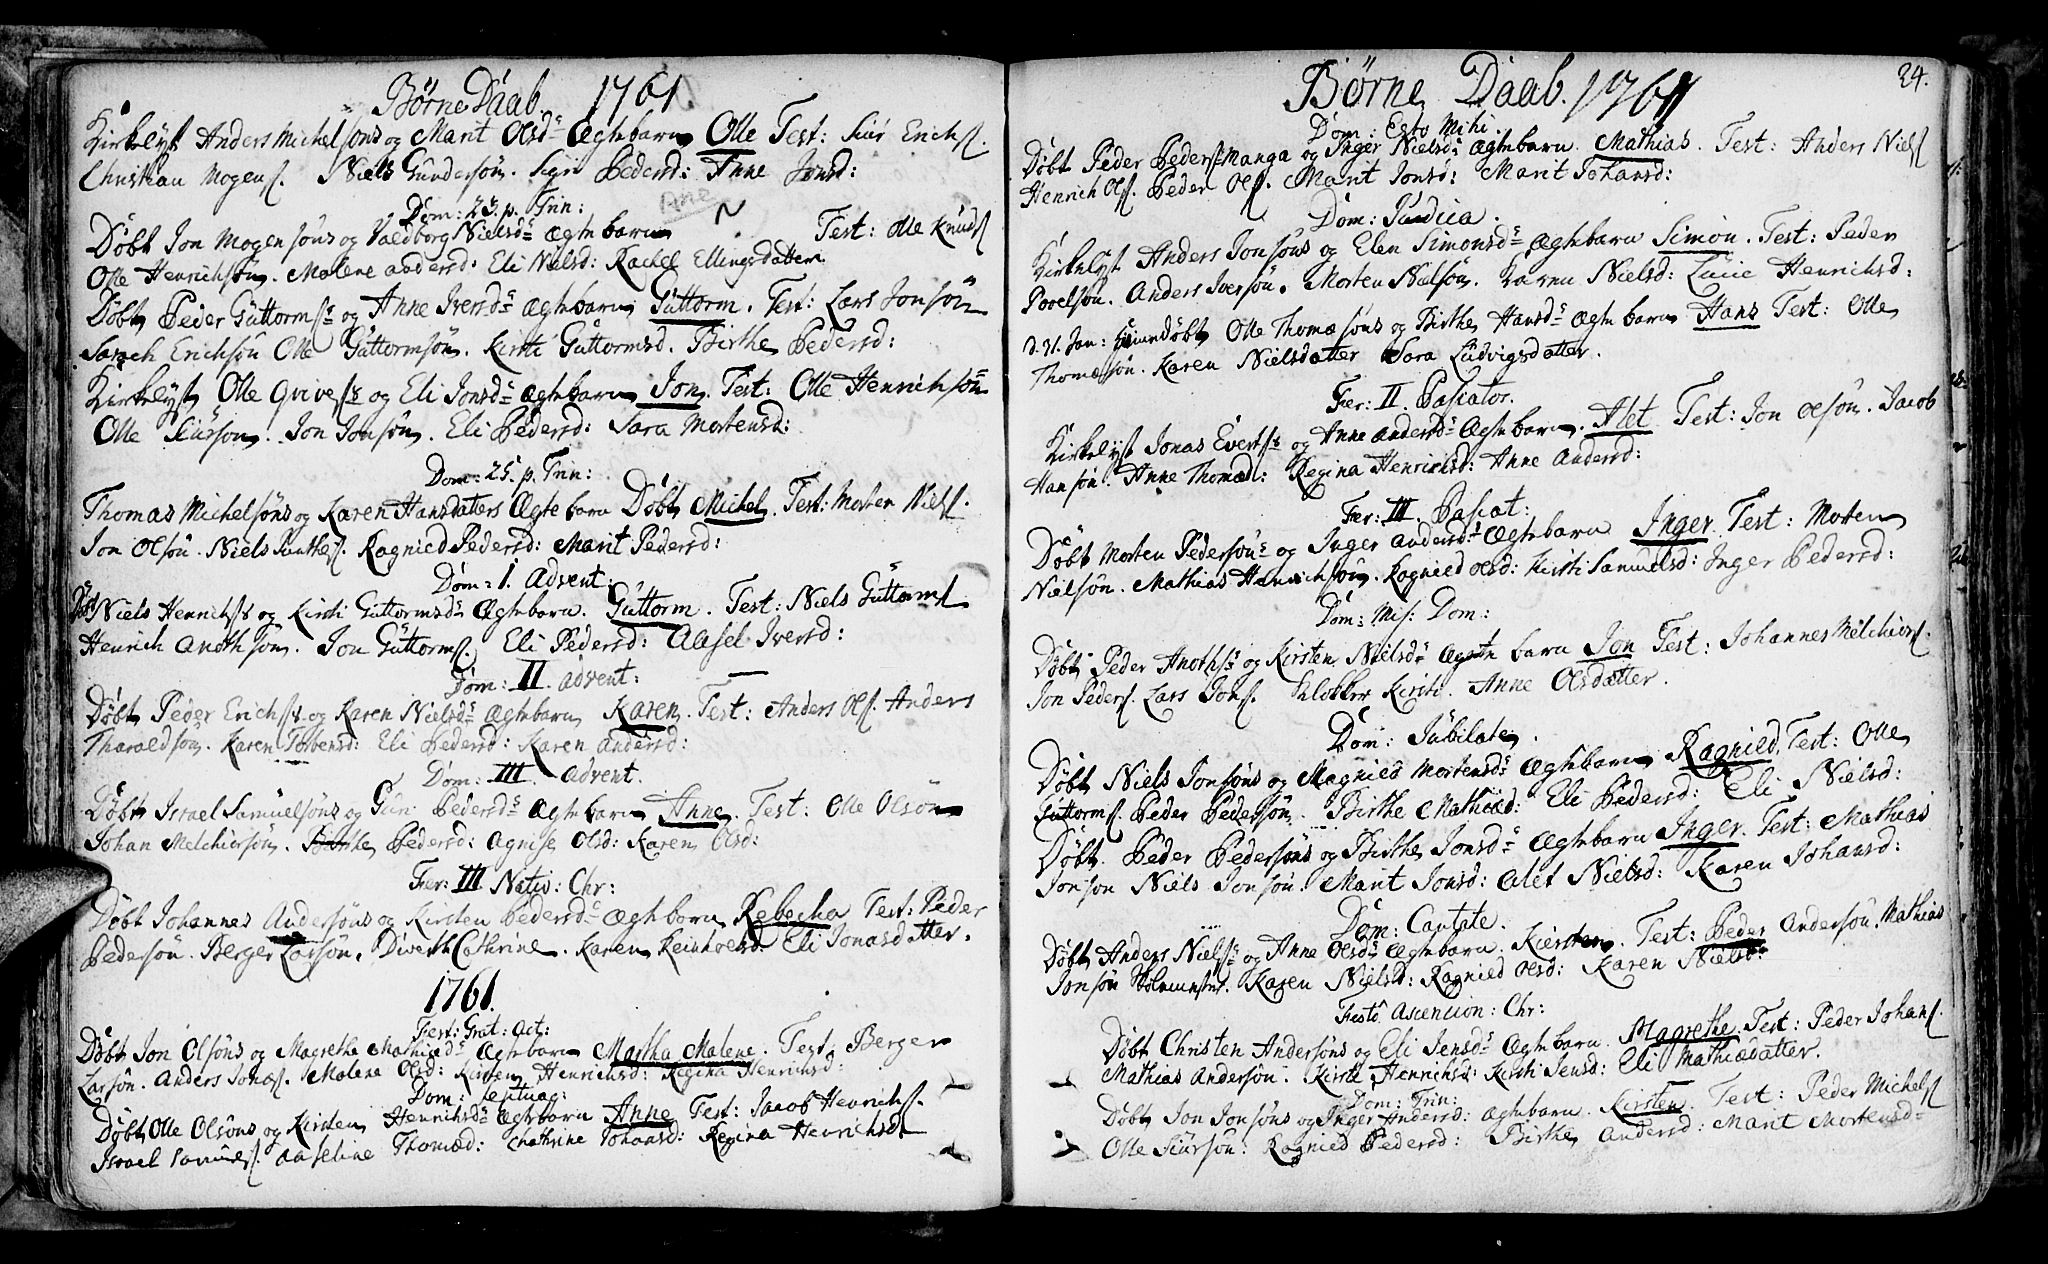 Børne Daab. 1761.
Kirkelyst Anders Michelsøns og Marit Olsd: Ægtebarn Olle Test: Siur Erichs.
Christian Mogens. Niels Gundersøn. Sigri Pedersd: Anne Jonsd:
Dom: 23. p. Trin:
Ane
Døbt Jon Mogensøns og Valdborg Nielsd: Ægtebarn ~ Test: Olle Knuds
Olle Henrichsøn. Malene andersd: Eli Nielsd: Rachel Ellingsdatter
Døbt Peder Guttorms: og Anne Iversd: Ægtebarn Guttorm. Test: Lars Jonsøn
Sarach Erichsøn Olle Guttormsøn. Kirsti Guttormsd. Birthe Pedersd:
Kirkelyst Olle Qvives: og Eli Jonsd: Ægtebarn Jon. Test: Olle Henrichsøn
Olle Siursøn. Jon Jonsøn. Eli Pedersd: Sara Mortensd:
Dom: 25. p. Trin:
Thomas Michelsøns og Karen Hansdatters Ægtebarn Døbt Michel. Test: Morten Niels.
Jon Olsøn. Niels. Ragnied Pedersd: Marit Pedersd:
Dom: 1. Advent:
Døbt Niels Henrichs: og Kirsti Guttormsd: Ægtebarn. Guttorm. Test: Niels Guttorms
Henrich Anothsøn. Jon Guttorms. Eli Pedersd: Aasel Iversd:
Dom: II. advent:
Døbt Peder Erichs: og Karen Nielsd: Ægtebarn Karen. Test: Anders Ols. Anders
Tharaldsøn. Karen Torbensd: Eli Pedersd: Karen andersd:
Dom: III. Advent.
Døbt Israel Samuelsøns og Guri Pedersd: Ægtebarn Anne. Test: Olle Olsøn
Johan Melchiorsøn. Birthe Pedersd: Agnise Olsd: Karen Olsd:
Fer: III Nativ: Chr:
Døbt Johannes Andersøns og Kirsten Pedersd: Ægtebarn Rebecha Test: Peder
Pedersøn. Berger Larsøn. Diverth Cathrine. Karen Reinholsd: Eli Jonasdatter.
1761.
Fest: Grat: Act:
Døbt Jon Olsøns og Magrethe Mathiæd: Ægtebarn Martha Malene. Test: Berger
Larsøn. Anders Jonas. Malene Olsd: Kirsten Henrichsd: Regina Henrichsd:
Dom: Septuag:
Døbt Olle Olsøns og Kirsten Henrichsd: Ægtebarn Anne Test: Jacob Henrichs.
Israel Samuels. aaseline Thomæd: Chathrine Johansd: Regina Henrichsd
Børne Daab. 1761
24.
Dom: Esto Mihi.
Døbt Peder Peders: Manga og Inger Nielsd: Ægtebarn. Mathias. Test: Anders Niels
Henrich Ols. Peder Ols. Marit Jonsd: Marit Johansd:
Dom: Judica.
Kirkelyst Anders Jonsøns og Elen Simonsd: Ægtebarn Simon. Test: Peder
Povelsøn. Anders Iversøn. Morten Nielsøn. Karen Nielsd: Lucie Henrichsd:
d. 31. Jan: Hiemedøbt Olle Thomæsøns og Birthe Hansd: Ægtebarn Hans Test: Olle
Thomæsøn. Karen Nielsdatter Sara Ludvigsdatter.
Fer: II. Paschatos.
Kirkelyst Jonas Everts: og Anne Andersd: Ægtebarn. Alet Test: Jon Olsøn. Jacob
Hansøn. Anne Thomæd: Regina Henrichsd: Anne Andersd:
Fer: III. Paschat:
Døbt Morten Pedersøns og Inger Andersd: Ægtebarn Inger. Test: Morten
Nielsøn. Mathias Henrichsøn. Ragnied Olsd: Kirsti Samuelsd: Inger Pedersd:
Dom: Mis: Dom:
Døbt Peder Anoths: og Kirsten Nielsd: Ægte barn Jon Test: Johannes Melchiors.
Jon Peders. Lars Jons. Klokker Kirsti. Anne Olsdatter.
Dom: Jubilate.
Døbt Niels Jonsøns og Magnied Mortensd: Ægtebarn Ragnied. Test: Olle
Guttorms. Peder Pedersøn. Birthe Mathiæd: Eli Pedersd: Eli Nielsd:
Døbt. Peder Pedersøns og Birthe Jonsd: Ægtebarn Inger. Test: Mathias
Jonson Niels Jonsøn. Marit Jonsd: Alet Nielsd: Karen Johansd:
Dom: Cantate.
Døbt Anders Niels: og Anne Olsd: Ægtebarn. Kiersten. Test: Peder Andersøn. Mathias
Jonsøn. Karen Nielsd: Ragnied Olsd: Karen Nielsd:
Festo Ascension: Chr:
Døbt Christen Andersøns og Eli Jensd: Ægtebarn. Magrethe. Test: Peder Johans.
Mathias Andersøn. Kirsti Henrichsd: Kirsti Jensd: Eli Mathiæsdatter.
Dom: Trin:
Døbt Jon Jonsøns og Inger Andersd: Ægtebarn. Kirsten. Test: Peder Michels
Olle Siursøn: Ragnied Pedersd: Birthe Andersd: Marit Mortensd: